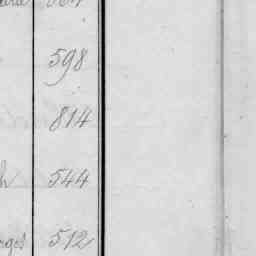 598
814
h 544
512